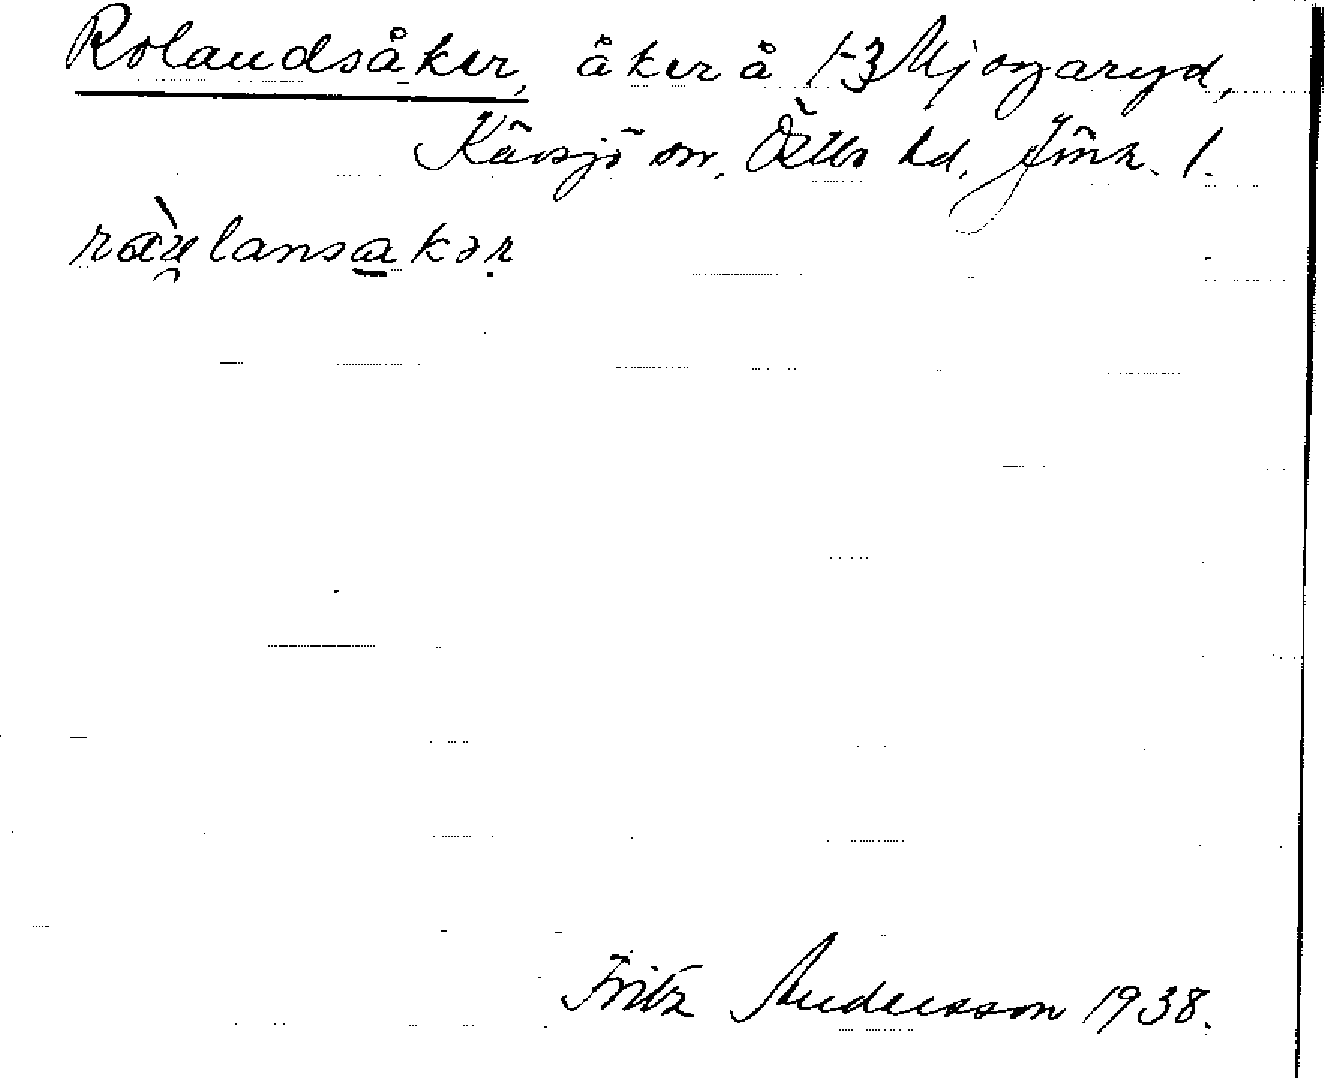 Rolandsåker, åker å 1-3 Mjogaryd,
Kävsjö sn, Östbo hd, Jönk. l.
ræu̯lansakər
Fritz Andersson 1938.